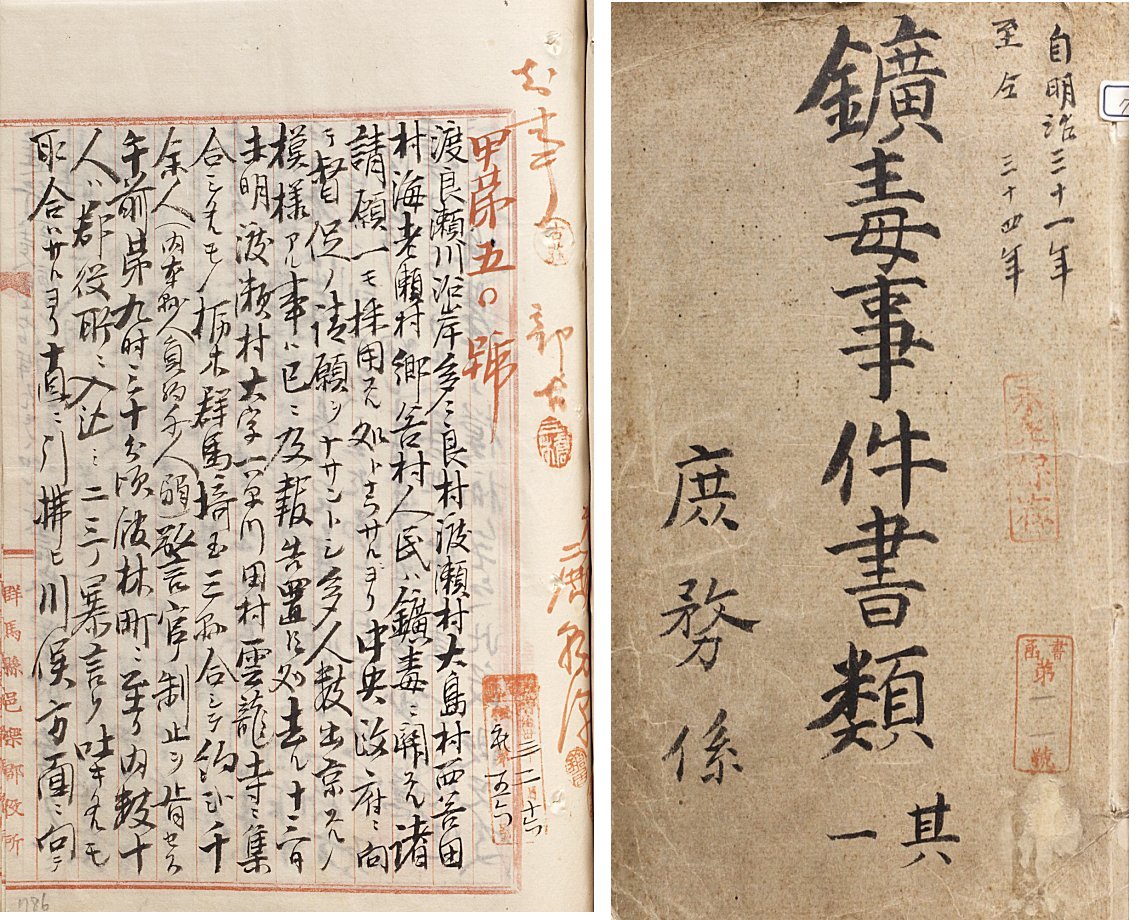 自明治三十一年
至仝三十四年
鑛毒事件書類
其一
庶務係
永久保存
書函第一一號
知事
部長
甲第五〇號
渡良瀬川沿岸多々良村渡瀬村大島村西谷田
村海老瀬村郷谷村人民ハ鑛毒ニ関スル諸
請願一モ採用スル処トナラサルヨリ中央政府ニ向
テ督促ノ請願ヲナサントシ多人数出京スルノ
模様アル事ハ已ニ及報告置候処去ル十三日
未明渡瀬村大字下早川田村雲龍寺ニ集
合シタルモノ栃木群馬埼玉三縣合シテ約弐千
余人(内本郡人員約千人)警官ノ制止ヲ肯セス
午前第九時三十分頃舘林町ニ至リ内数十
人ハ郡役所ニ入込ミ二三ノ暴言ヲ吐キタルモ
取合ハサルヨリ直ニ引拂ヒ川俣方面ニ向テ
群馬縣邑樂郡役所
786